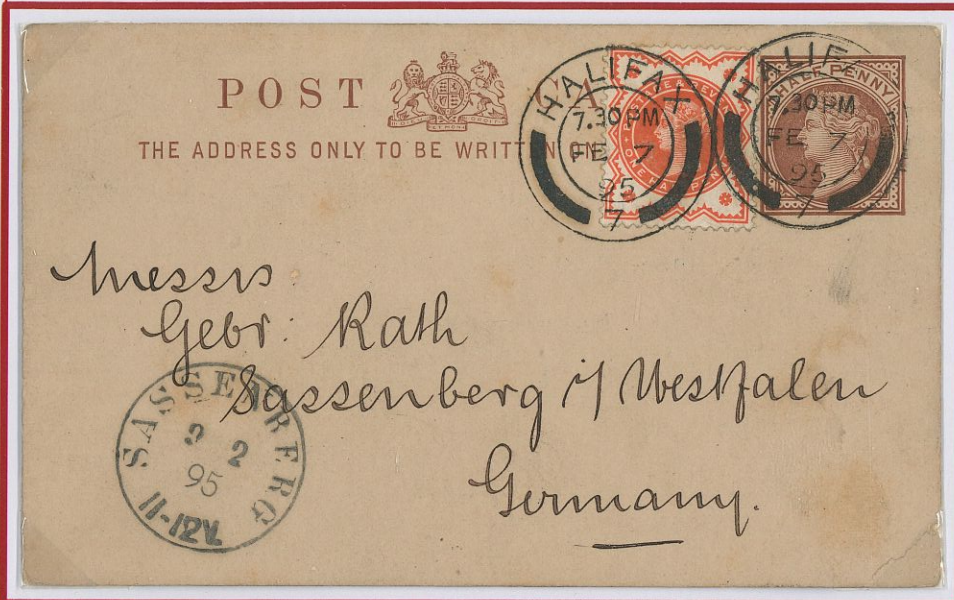 POST CA
THE ADDRESS ONLY TO BE WRITTEN ON
HALIFAX
7.30PM
FE 7
95
7
ONE HALF PEN
HALIFA
7.30PM
FE 7
95
7
HALFPENNY
Messrs
Gebr. Rath
Sassenberg i/ Westfalen
Germany.
SASSENBERG
9 2
95
11-12V.